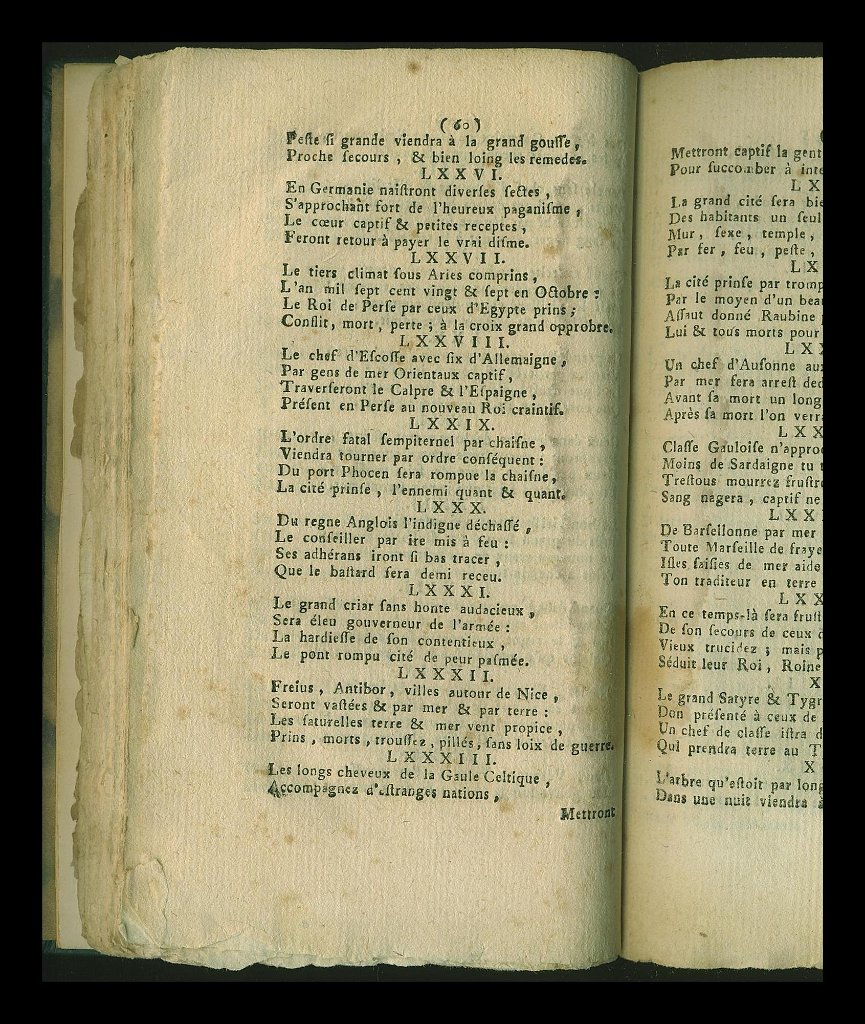 ( 60 )
Peste si grande viendra à la grand gousse,
Proche secours, & bien loing les remedes.
LXXVI.
En Germanie naistront diverses sectes,
S'approchant fort de l'heureux paganisme,
Le cœur captif & petites receptes,
Feront retour à payer le vrai disme.
LXXVII.
Le tiers climat sous Aries comprins,
L'an mil sept cent vingt & sept en Octobre :
Le Roi de Perse par ceux d'Egypte prins ;
Conflit, mort, perte ; à la croix grand opprobre.
LXXVIII.
Le chef d'Escosse avec six d'Allemaigne,
Par gens de mer Orientaux captif,
Traverseront le Calpre & l'Espaigne,
Présent en Perse au nouveau Roi craintif.
LXXIX.
L'ordre fatal sempiternel par chaisne,
Viendra tourner par ordre conséquent :
Du port Phocen sera rompue la chaisne,
La cité prinse, l'ennemi quant & quant.
LXXX.
Du regne Anglois l'indigne déchassé,
Le conseiller par ire mis à feu :
Ses adhérans iront si bas tracer,
Que le bastard sera demi receu.
LXXXI.
Le grand criar sans honte audacieux,
Sera éleu gouverneur de l'armée :
La hardiesse de son contentieux,
Le pont rompu cité de peur pasmée.
LXXXII.
Freius, Antibor, villes autour de Nice,
Seront vastées & par mer & par terre :
Les saturelles terre & mer vent propice,
Prins, morts, troussez, pillés, sans loix de guerre.
LXXXIII.
Les longs cheveux de la Gaule Celtique,
Accompagnez d'estranges nations,
Mettront
Mettront captif la gent
Pour succomber à inte
LX
La grand cité sera bie
Des habitants un seul
Mur, sexe, temple,
Par fer, feu, peste,
LX
La cité prinse par tromp
Par le moyen d'un beau
Assaut donné Raubine
Lui & tous morts pour
LXX
Un chef d'Ausonne aux
Par mer sera arrest ded
Avant sa mort un long
Après sa mort l'on verra
LXX
Classe Gauloise n'approc
Moins de Sardaigne tu t
Trestous mourrez frustré
Sang nagera, captif ne
LXX
De Barsellonne par mer
Toute Marseille de fraye
Isles saisies de mer aide
Ton traditeur en terre
LXX
En ce temps-là sera frust
De son secours de ceux
Vieux trucidez ; mais p
Séduit leur Roi, Roine
X
Le grand Satyre & Tygr
Don présenté à ceux de
Un chef de classe istra d
Qui prendra terre au T
X
L'arbre qu'estoit par long
Dans une nuit viendra à